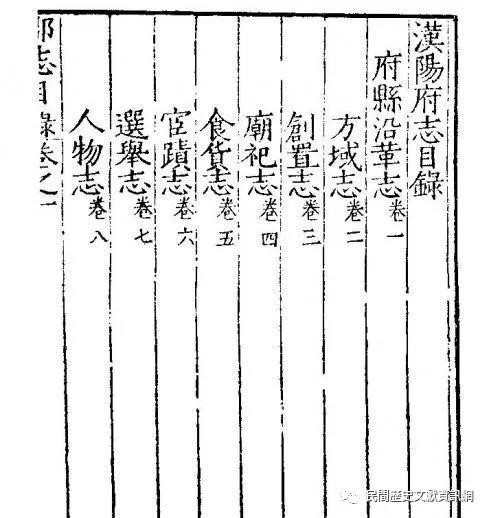 漢陽府志目錄
府縣沿革志 卷一
方域志 卷二
創置志 卷三
廟祀志 卷四
食貨志 卷五
宦蹟志 卷六
選舉志 卷七
人物志 卷八
郡志目錄卷之一
民間歷史文獻資訊網